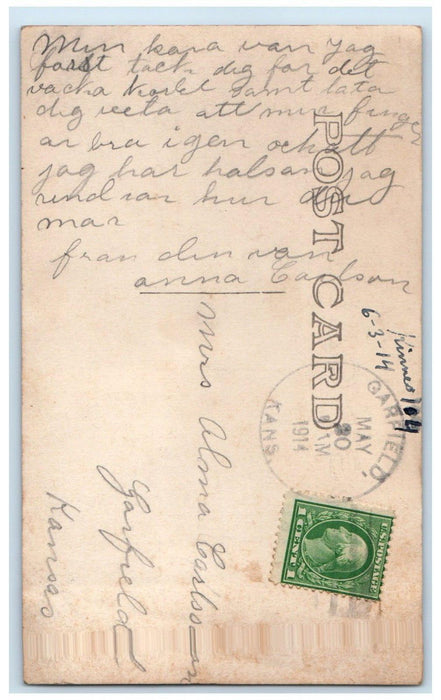 Min kara van jag
forst tack dig for det
vacka kortet samt lata
dig veta att min finger
ar bra igen och att
jag har halsan jag
undrar hur du
mar
fran din van
anna Carlson
POST CARD
6-3-14
GARFIELD.
MAY
30
AM
1914
KANS.
Mrs Alma Carlson
Garfield
Kansas
U.S. POSTAGE
1 CENT 1